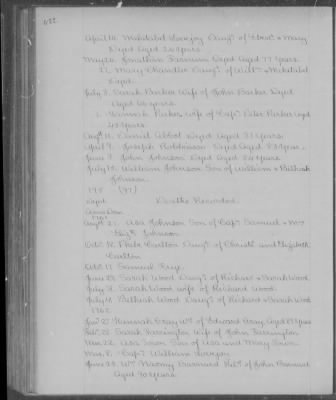 April 14. Mehitabel Lovejoy Daug.r of Christ.o & Mary
Dyed Aged 20 years.
May 20. Jonathan Barnum Dyed Aged 77 Years
27. Mary Chandler Daug.r of Will.m & Mehitabel
Dyed.
July 3. Sarah Barker Wife of John Barker Dyed
Aged 46 years.
Hannah Parker wife of Cap.t Peter Parker aged
Aug.st 14. Daniel Abbot Dyed Aged 37 years.
April 9. Joseph Robbinson Dyed Aged
June 7. John Johnson Dyed Aged 80 years
July 19. William Johnson Son of William & Bilhiah
Johnson.
195 (97)
Deaths Recorded
Anno Dom.
1761
Aug.st 21. Asa Johnson Son of Cap.t Samuel & M.rs
Eliz.th Johnson.
Oct.r 12. Phebe Carlton Daug.r of Christ.r and Elizabeth
Carlton
Oct.r 17. Samuel Frye.
June 23. Sarah Wood Daug.r of Richard & Sarah Wood
July 2. Sarah Wood wife of Richard Wood.
July 11. Bilhiah Wood Daug.r of Richard & Sarah Wood
1762.
Jan.y 27. Hannah Gray W.o of Edward Gray Aged years
Feb. 22. Sarah Farrington Wife of John Farrington
Mar. 22. Asa Town Son of Asa and Mary Town.
May. 8. Cap.t William Lovejoy
June 23. W.do Naomy Barnard Rel.t of John Barnard
Aged 90 years.